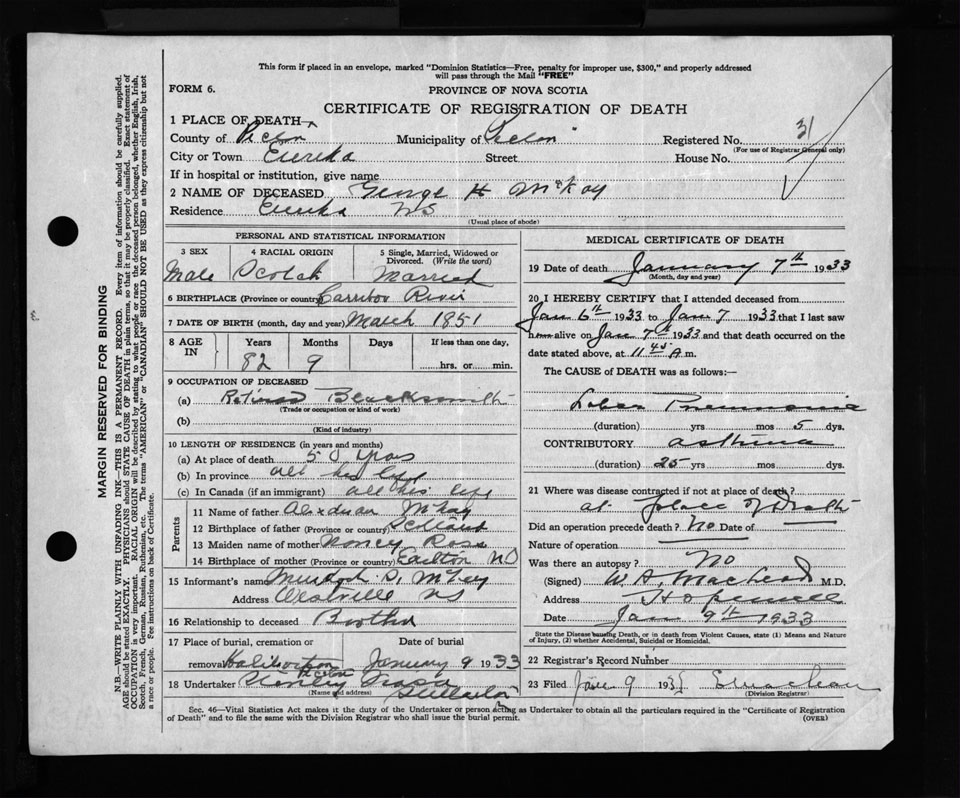 This form if placed in an envelope, marked "Dominion Statistics—Free, penalty for improper use, $300," and properly addressed
will pass through the Mail "FREE"
FORM 6.
PROVINCE OF NOVA SCOTIA
CERTIFICATE OF REGISTRATION OF DEATH
1 PLACE OF DEATH
County of Pictou Municipality of Pictou Registered No. 31
(For use of Registrar General only)
City or Town Eureka Street House No.
If in hospital or institution, give name
2 NAME OF DECEASED George H McKay
Residence Eureka NS
(Usual place of abode)
PERSONAL AND STATISTICAL INFORMATION
3 SEX 4 RACIAL ORIGIN 5 Single, Married, Widowed or
Divorced. (Write the word)
Male Scotch Married
6 BIRTHPLACE (Province or country) Carribou River
7 DATE OF BIRTH (month, day and year) March 1851
8 AGE IN Years Months Days If less than one day,
82 9 hrs. or min.
9 OCCUPATION OF DECEASED
(a) Retired Blacksmith
(Trade or occupation or kind of work)
(b)
(Kind of industry)
10 LENGTH OF RESIDENCE (in years and months)
(a) At place of death 50 years
(b) In province all his life
(c) In Canada (if an immigrant) all his life
Parents
11 Name of father McKay
12 Birthplace of father (Province or country)
13 Maiden name of mother Nancy Ross
14 Birthplace of mother (Province or country) Earlton NS
15 Informant's name Murdoch D. McKay
Address Westville NS
16 Relationship to deceased Brother
17 Place of burial, cremation or Date of burial
removal Haliburton Pictou January 9 1933
18 Undertaker
(Name and address) Stellarton
MEDICAL CERTIFICATE OF DEATH
19 Date of death January 7th 1933
(Month, day and year)
20 I HEREBY CERTIFY that I attended deceased from
Jan 6th 1933 to Jan 7 1933 that I last saw
him alive on Jan 7th 1933 and that death occurred on the
date stated above, at 11 45 A.m.
The CAUSE of DEATH was as follows:—
Lobar Pneumonia
(duration) yrs mos 5 dys.
CONTRIBUTORY asthma
(duration) 25 yrs mos dys.
21 Where was disease contracted if not at place of death?
at place of Death
Did an operation precede death? No Date of
Nature of operation
Was there an autopsy? No
(Signed) W. A. MacLeod M.D.
Address Hopewell
Date Jan 9th 1933
State the Disease causing Death, or in death from Violent Causes, state (1) Means and Nature
of Injury, (2) whether Accidental, Suicidal or Homicidal.
22 Registrar's Record Number
23 Filed Jan 9 193
(Division Registrar)
Sec. 46—Vital Statistics Act makes it the duty of the Undertaker or person acting as Undertaker to obtain all the particulars required in the "Certificate of Registration
of Death" and to file the same with the Division Registrar who shall issue the burial permit. (OVER)
MARGIN RESERVED FOR BINDING
N.B.—WRITE PLAINLY WITH UNFADING INK—THIS IS A PERMANENT RECORD. Every item of information should be carefully supplied.
AGE should be stated EXACTLY. PHYSICIANS should STATE CAUSE OF DEATH in plain terms, so that it may be properly classified. Exact statement of
OCCUPATION is very important. RACIAL ORIGIN will be described by stating to what people or race the deceased person belonged, whether English, Irish,
Scotch, French, German, Russian, Ruthenian, etc. The terms "AMERICAN" or "CANADIAN" SHOULD NOT BE USED as they express citizenship but not
a race or people. See instructions on back of Certificate.